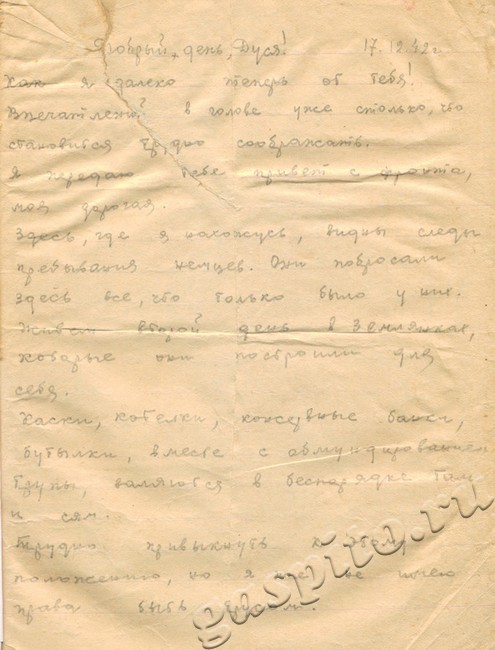 Добрый день, Дуся! 17.12.42г.
Как я далеко теперь от тебя!
Впечатлений в голове уже столько, что
становится трудно соображать.
Я передаю тебе привет с фронта,
моя дорогая.
Здесь, где я нахожусь, видны следы
пребывания немцев. Они побросали
здесь все, что только было у них.
Живем второй день в землянках,
которые они построили для
себя.
Каски, котелки, консервные банки,
бутылки, вместе с обмундированием
трупы, валяются в беспорядке там
и сям.
Трудно привыкнуть к этому
положению, но я не имею
права быть трусом.
guspiło.ru